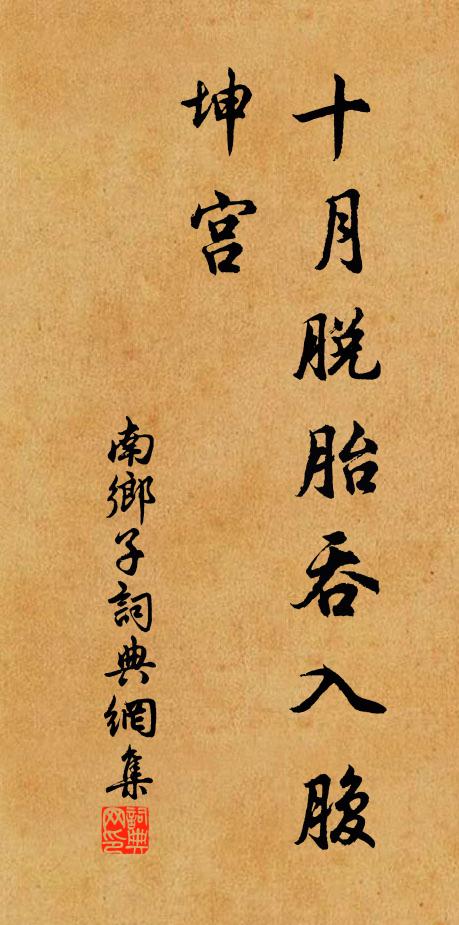 十月脱胎吞入腹
坤宫
南鄉子詞典網集
詞典网印